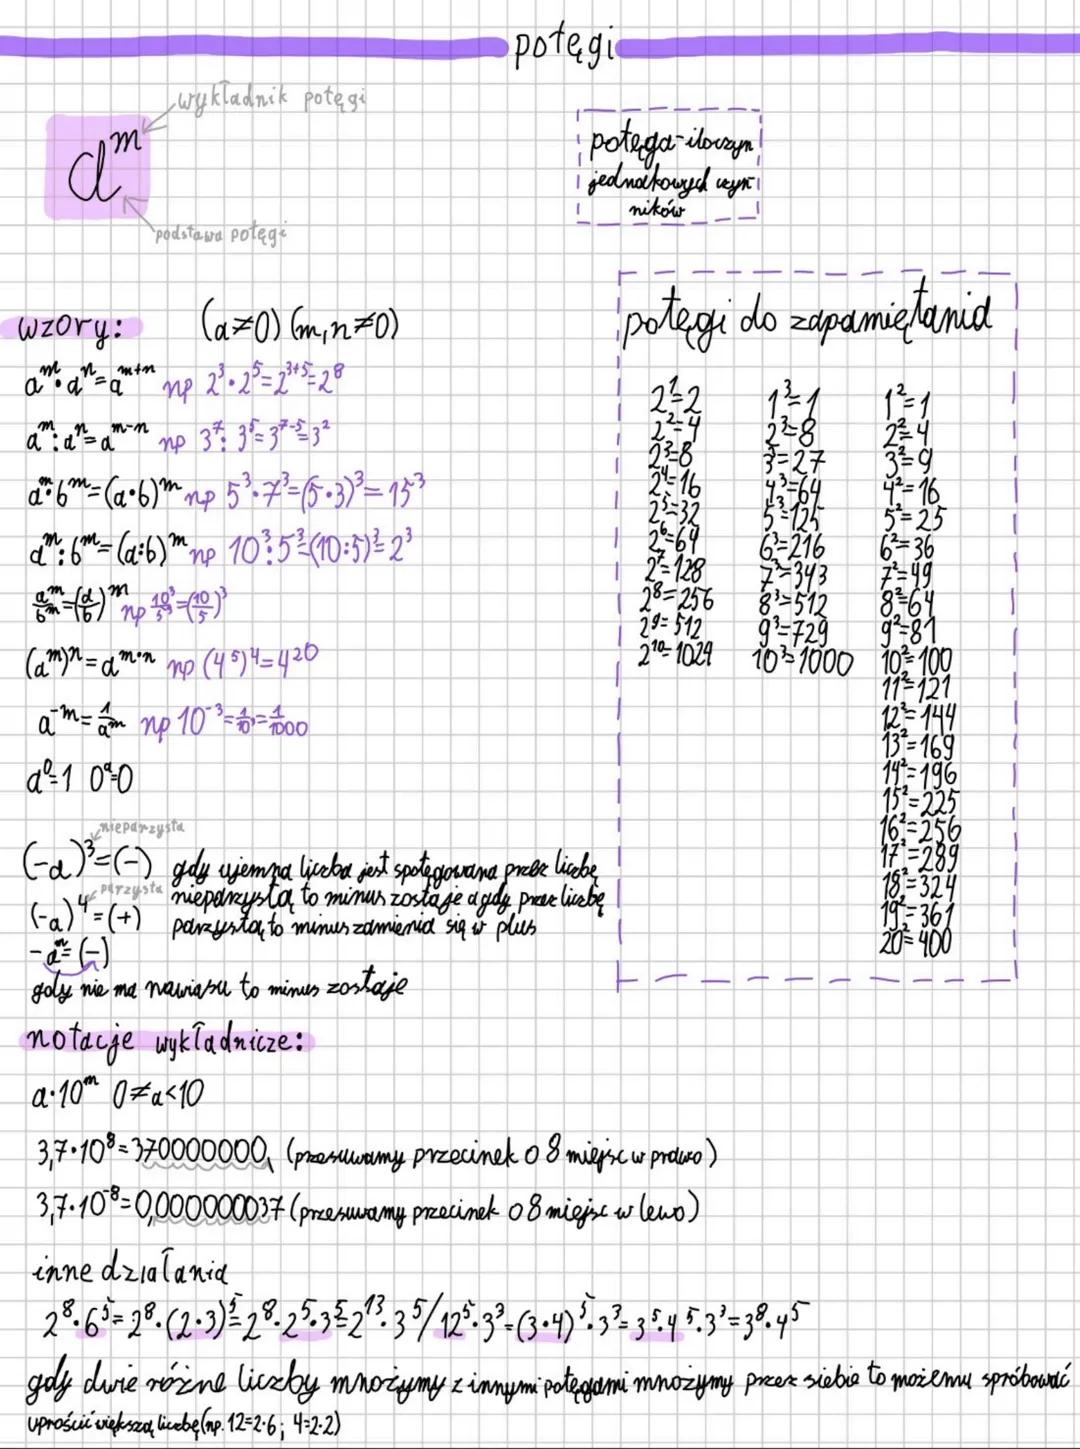 potęgi
wykładnik potęgi
a^m
podstawa potęgi
potęga-iloczyn
jednakowych czyn-
ników
wzory: (a≠0) (m,n≠0)
a^m·a^n=a^(m+n) np 2^3·2^5=2^(3+5)=2^8
a^m:a^n=a^(m-n) np 3^7:3^5=3^(7-5)=3^2
a^m·b^m=(a·b)^m np 5^3·7^3=(5·3)^3=15^3
a^m:b^m=(a:b)^m np 10^3:5^3=(10:5)^3=2^3
a^m/b^m=(a/b)^m np 10^3/5^3=(10/5)^3
(a^m)^n=a^(m·n) np (4^5)^4=4^20
a^-m=1/a^m np 10^-3=1/10^3=1/1000
a^0=1 0^a=0
nieparzysta
(-a)^3=(-) gdy ujemna liczba jest spotęgowana przez liczbę
parzysta nieparzystą to minus zostaje a gdy przez liczbę
(-a)^4=(+) parzystą to minus zamienia się w plus
-a^n=(-)
gdy nie ma nawiasu to minus zostaje
potęgi do zapamiętania
2^1=2
2^2=4
2^3=8
2^4=16
2^5=32
2^6=64
2^7=128
2^8=256
2^9=512
2^10=1024
1^3=1
2^3=8
3^3=27
4^3=64
5^3=125
6^3=216
7^3=343
8^3=512
9^3=729
10^3=1000
1^2=1
2^2=4
3^2=9
4^2=16
5^2=25
6^2=36
7^2=49
8^2=64
9^2=81
10^2=100
11^2=121
12^2=144
13^2=169
14^2=196
15^2=225
16^2=256
17^2=289
18^2=324
19^2=361
20^2=400
notacje wykładnicze:
a·10^m 0≠a<10
3,7·10^8=370000000, (przesuwamy przecinek o 8 miejsc w prawo)
3,7·10^-8=0,000000037 (przesuwamy przecinek o 8 miejsc w lewo)
inne działania
2^8·6^5=2^8·(2·3)^5=2^8·2^5·3^5=2^13·3^5/12^5·3^3=(3·4)^5·3^3=3^5·4^5·3^3=3^8·4^5
gdy dwie różne liczby mnożymy z innymi potęgami mnożymy przez siebie to możemu spróbować
uprościć większą liczbę (np. 12=2·6; 4=2·2)